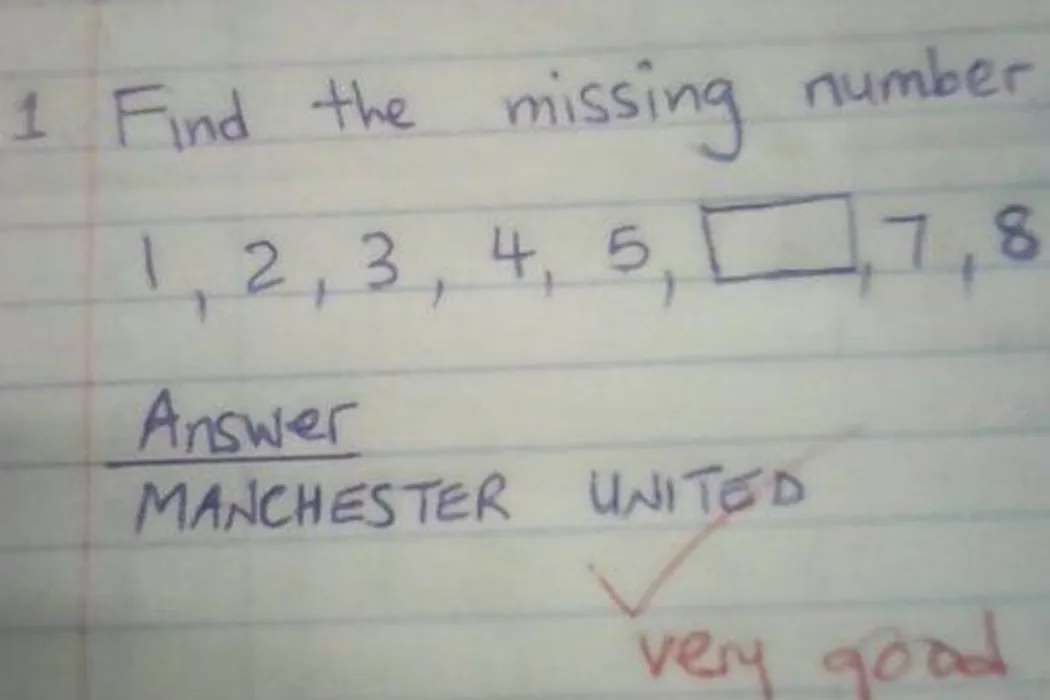 1 Find the missing number
1, 2, 3, 4, 5, , 7, 8
Answer
MANCHESTER UNITED
very good